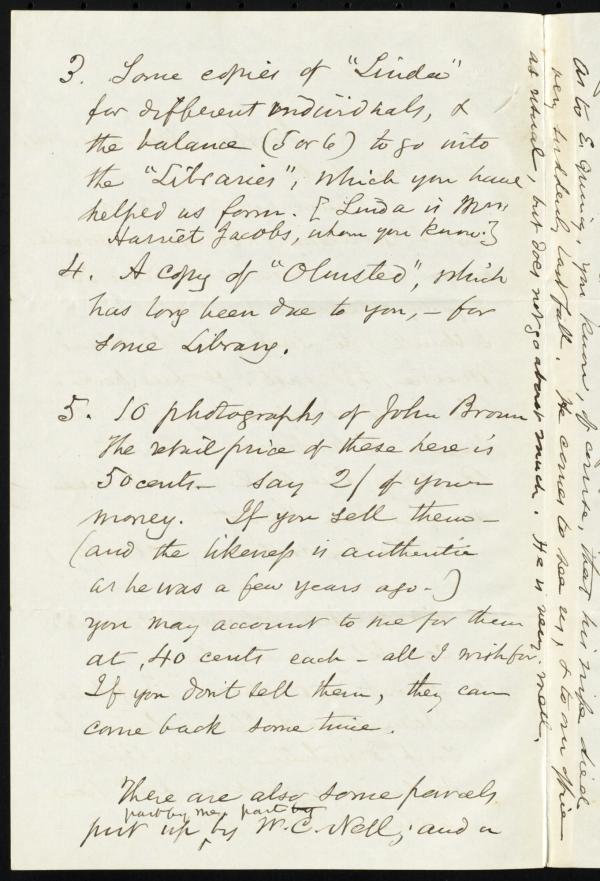 3. Some copies of "Linda"
for different individuals, &
the balance (5 or 6) to go into
the "Libraries", which you have
helped us form. [Linda is Mrs.
Harriet Jacobs, whom you know.]
4. A copy of "Olmsted", which
has long been due to you, – for
some Library.
5. 10 photographs of John Brown
The retail price of these here is
50 cents – say 2/ of your
money. If you sell them –
(and the likeness is authentic
as he was a few years ago –)
you may account to me for them
at 40 cents each – all I wish for.
If you don't sell them, they can
come back some time.
There are also some parcels
partly by me, part by
put up by W. C. Nell; and a
As to E. Quincy, you know, of course, that his wife died
very suddenly last fall. He comes to see us, & to our office
as usual, but does not go about much. He is very well.